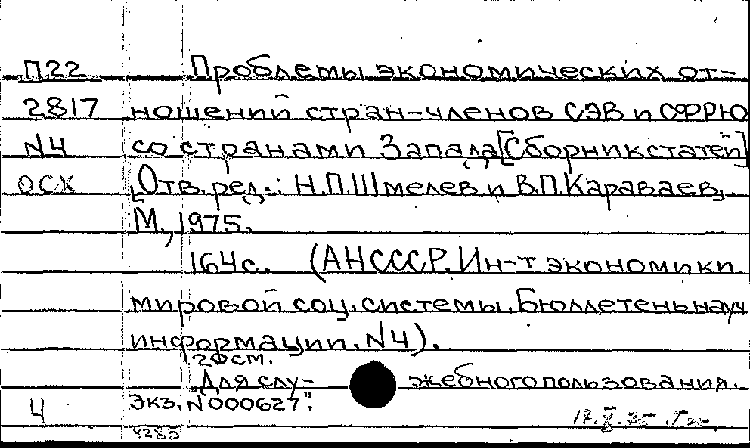 П22 Проблемы экономических от-
2817 ношений стран-членов СЭВ и СФРЮ
N4 со странами Запада [Сборник статей]
ОСХ [Отв. ред.: Н.П.Шмелев и В.П.Караваев].
М., 1975.
164с. (АН СССР. Ин-т экономики
мировой соц. системы. Бюллетень науч
информации. N4).
20см.
"Для слу- жебного пользования.
4 Экз. N000627".
4285